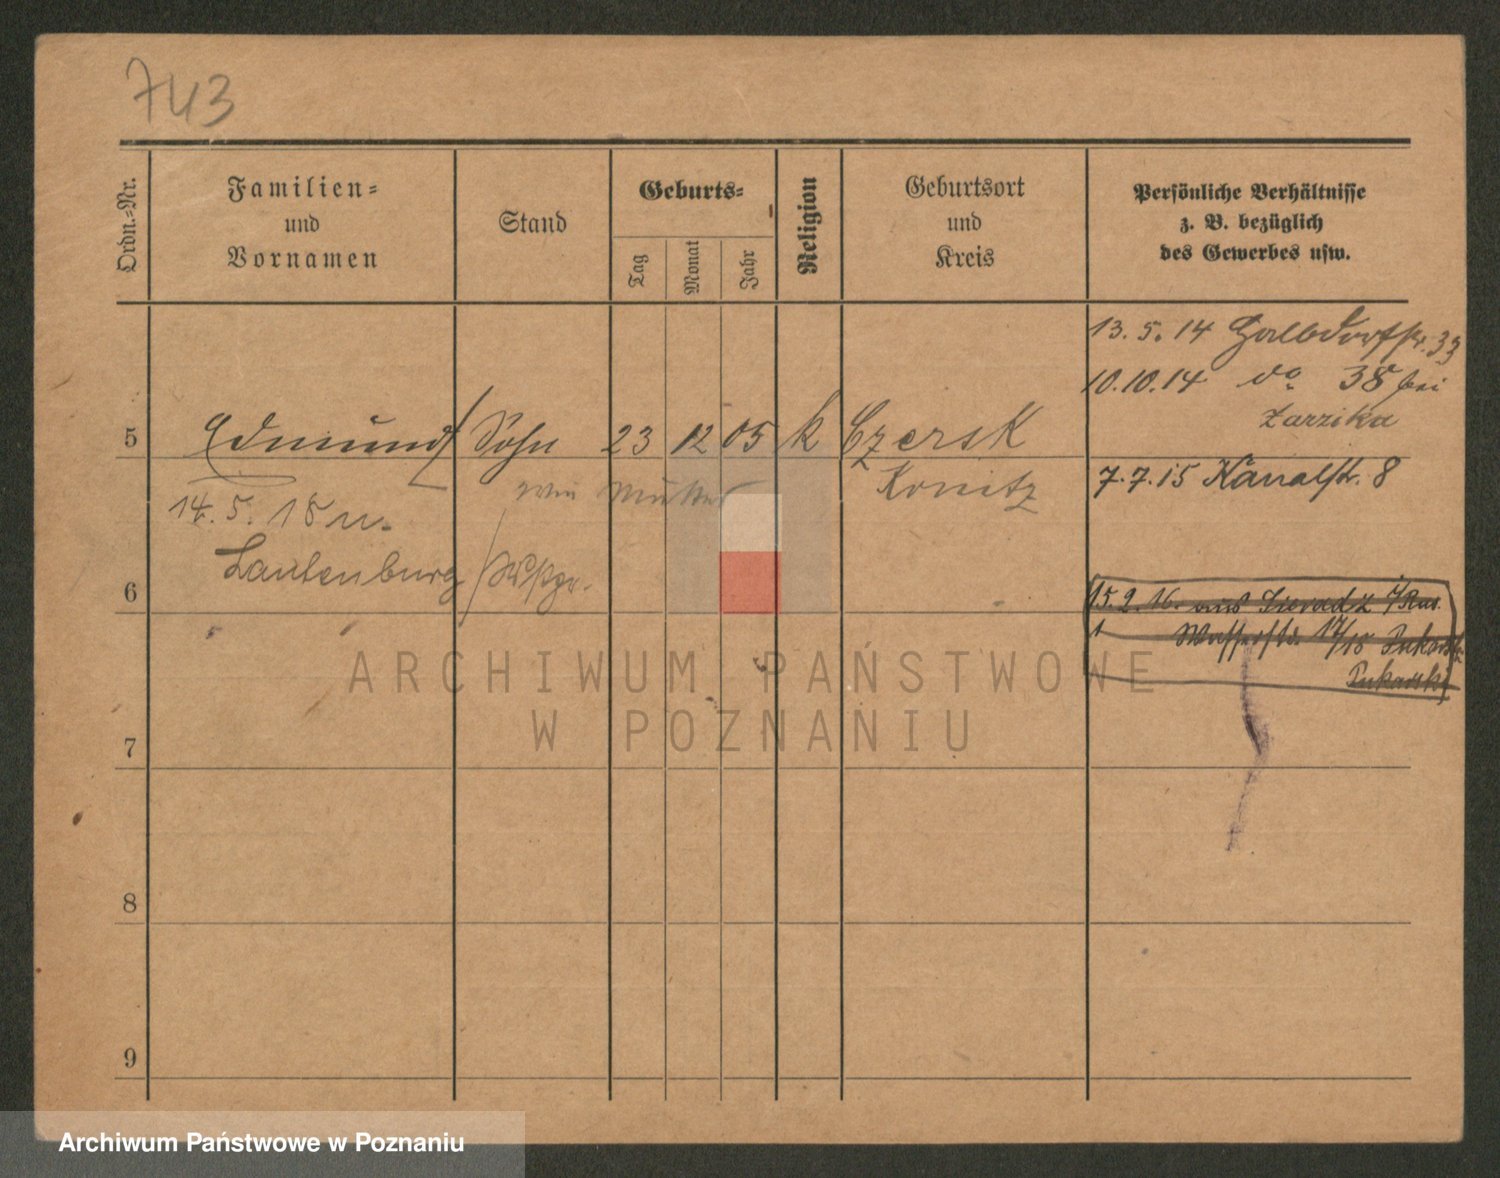 743
Ordn.-Nr.
Familien-
und
Vornamen
Stand
Geburts-
Tag
Monat
Jahr
Religion
Geburtsort
und
Kreis
Persönliche Verhältnisse
z. B. bezüglich
des Gewerbes usw.
13.5.14 Halbdorfstr. 33
10.10.14 do 38 bei
Zarzika
5 Edmund Sohn 23 12 05 k Czersk
wie Mutter Konitz
7.7.15 Kanalstr. 8
14.5.18 n.
Lautenburg /Wstpr.
6
15.2.16. aus Sieradz i/Rus.
Wasserstr. 17/18
Pukarski
7
8
9
ARCHIWUM PAŃSTWOWE
W POZNANIU
Archiwum Państwowe w Poznaniu